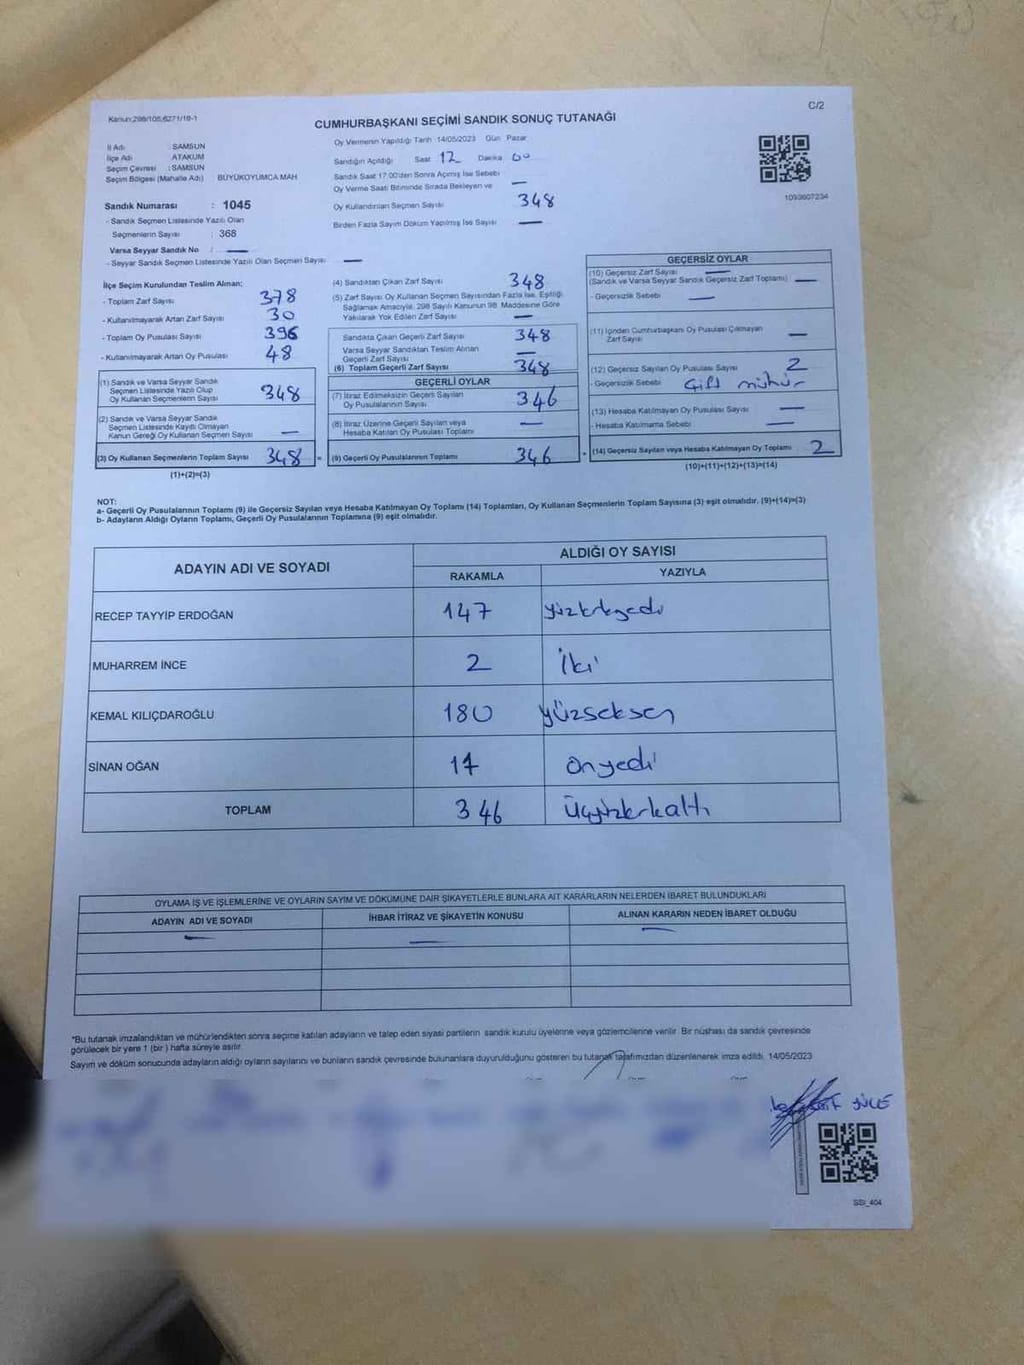 Kanun;298/105,6271/18-1
C/2
CUMHURBAŞKANI SEÇİMİ SANDIK SONUÇ TUTANAĞI
İl Adı : SAMSUN
İlçe Adı : ATAKUM
Seçim Çevresi : SAMSUN
Seçim Bölgesi (Mahalle Adı) : BÜYÜKOYUMCA MAH
Sandık Numarası : 1045
- Sandık Seçmen Listesinde Yazılı Olan
Seçmenlerin Sayısı : 368
Varsa Seyyar Sandık No : —
- Seyyar Sandık Seçmen Listesinde Yazılı Olan Seçmen Sayısı —
Oy Vermenin Yapıldığı Tarih 14/05/2023 Gün Pazar
Sandığın Açıldığı Saat 17 Dakika 00
Sandık Saat 17:00'den Sonra Açılmış İse Sebebi —
Oy Verme Saati Bitiminde Sırada Bekleyen ve
Oy Kullandırılan Seçmen Sayısı 348
Birden Fazla Sayım Döküm Yapılmış İse Sayısı —
1093607234
İlçe Seçim Kurulundan Teslim Alınan;
- Toplam Zarf Sayısı 378
- Kullanılmayarak Artan Zarf Sayısı 30
- Toplam Oy Pusulası Sayısı 396
- Kullanılmayarak Artan Oy Pusulası 48
(1) Sandık ve Varsa Seyyar Sandık
Seçmen Listesinde Yazılı Olup
Oy Kullanan Seçmenlerin Sayısı 348
(2) Sandık ve Varsa Seyyar Sandık
Seçmen Listesinde Kayıtlı Olmayan
Kanun Gereği Oy Kullanan Seçmen Sayısı —
(3) Oy Kullanan Seçmenlerin Toplam Sayısı 348 =
(1)+(2)=(3)
(4) Sandıktan Çıkan Zarf Sayısı 348
(5) Zarf Sayısı Oy Kullanan Seçmen Sayısından Fazla İse, Eşitliği
Sağlamak Amacıyla, 298 Sayılı Kanunun 98. Maddesine Göre
Yakılarak Yok Edilen Zarf Sayısı —
Sandıkta Çıkan Geçerli Zarf Sayısı 348
Varsa Seyyar Sandıktan Teslim Alınan
Geçerli Zarf Sayısı —
(6) Toplam Geçerli Zarf Sayısı 348
GEÇERLİ OYLAR
(7) İtiraz Edilmeksizin Geçerli Sayılan
Oy Pusulalarının Sayısı 346
(8) İtiraz Üzerine Geçerli Sayılan veya
Hesaba Katılan Oy Pusulası Toplamı —
(9) Geçerli Oy Pusulalarının Toplamı 346 +
GEÇERSİZ OYLAR
(10) Geçersiz Zarf Sayısı —
(Sandık ve Varsa Seyyar Sandık Geçersiz Zarf Toplamı) —
- Geçersizlik Sebebi —
(11) İçinden Cumhurbaşkanı Oy Pusulası Çıkmayan
Zarf Sayısı —
(12) Geçersiz Sayılan Oy Pusulası Sayısı 2
- Geçersizlik Sebebi Çift mühür
(13) Hesaba Katılmayan Oy Pusulası Sayısı —
- Hesaba Katılmama Sebebi —
(14) Geçersiz Sayılan veya Hesaba Katılmayan Oy Toplamı 2
(10)+(11)+(12)+(13)=(14)
NOT:
a- Geçerli Oy Pusulalarının Toplamı (9) ile Geçersiz Sayılan veya Hesaba Katılmayan Oy Toplamı (14) Toplamları, Oy Kullanan Seçmenlerin Toplam Sayısına (3) eşit olmalıdır. (9)+(14)=(3)
b- Adayların Aldığı Oyların Toplamı, Geçerli Oy Pusulalarının Toplamına (9) eşit olmalıdır.
ADAYIN ADI VE SOYADI ALDIĞI OY SAYISI
RAKAMLA YAZIYLA
RECEP TAYYİP ERDOĞAN 147 yüzkırkyedi
MUHARREM İNCE 2 İki
KEMAL KILIÇDAROĞLU 180 yüzseksen
SİNAN OĞAN 17 onyedi
TOPLAM 346 Üçyüzkırkaltı
OYLAMA İŞ VE İŞLEMLERİNE VE OYLARIN SAYIM VE DÖKÜMÜNE DAİR ŞİKAYETLERLE BUNLARA AİT KARARLARIN NELERDEN İBARET BULUNDUKLARI
ADAYIN ADI VE SOYADI İHBAR İTİRAZ VE ŞİKAYETİN KONUSU ALINAN KARARIN NEDEN İBARET OLDUĞU
— — —
*Bu tutanak imzalandıktan ve mühürlendikten sonra seçime katılan adayların ve talep eden siyasi partilerin sandık kurulu üyelerine veya gözlemcilerine verilir. Bir nüshası da sandık çevresinde
görülecek bir yere 1 (bir) hafta süreyle asılır.
Sayım ve döküm sonucunda adayların aldığı oyların sayılarını ve bunların sandık çevresinde bulunanlara duyurulduğunu gösteren bu tutanak tarafımızdan düzenlenerek imza edildi. 14/05/2023
SSI_404